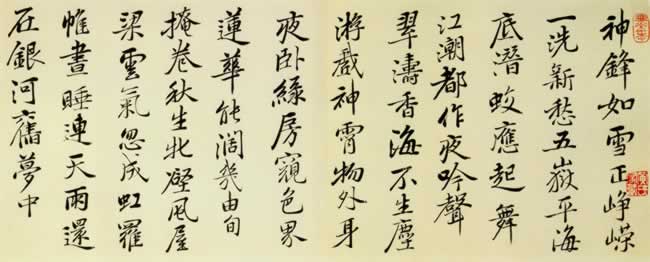 神鋒如雪正崢嶸
一洗新愁五嶽平海
底潛蛟應起舞
江潮都作夜吟聲
翠濤香海不生塵
游戲神霄物外身
夜卧綠房窺色界
蓮華能濶幾由旬
掩卷秋生北壁風屋
梁雲氣忽成虹羅
帷晝睡連天雨還
在銀河舊夢中